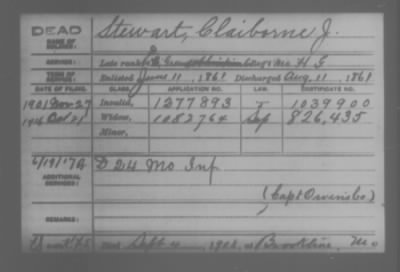 DEAD Stewart, Claiborne J.
NAME OF SOLDIER:
SERVICE: Late rank, Mo H G
TERM OF SERVICE: Enlisted June 11, 1861 Discharged Aug. 11, 1861
DATE OF FILING. CLASS. APPLICATION NO. LAW. CERTIFICATE NO.
1901 Nov 27 Invalid, 1277893 1039900
Oct 21 Widow, 1082764 Sep 826,435
Minor,
6/19/17 D 24 Mo Inf
ADDITIONAL SERVICES:
(Capt Owens Co)
REMARKS:
died Sept 4, 1908, at Brookline, Mo